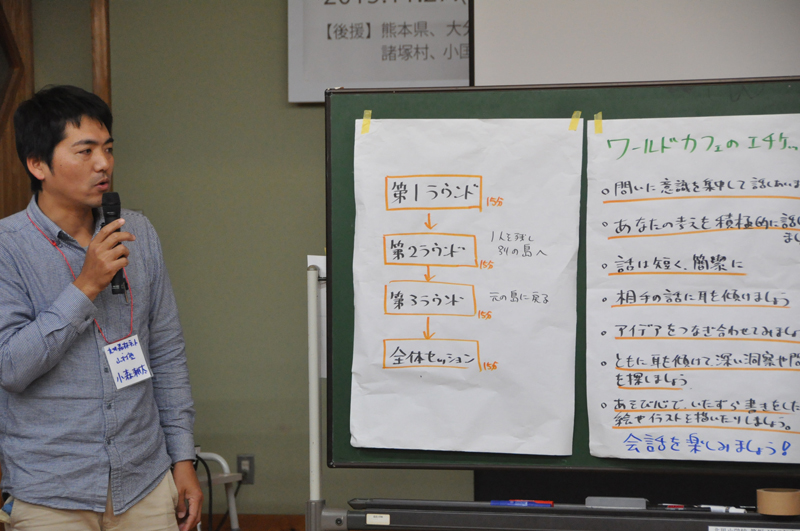 【後援】熊本県、大分
諸塚村、小国
第1ラウンド
15分
1人を残し
別の島へ
第2ラウンド
15分
第3ラウンド
15分
元の島に戻る
全体セッション
15分
ワールドカフェのエチケッ
問いに意識を集中して話しあいま
あなたの考えを積極的に話し
まし
話は短く、簡潔に
相手の話に耳を傾けましょう
アイデアをつなぎ合わせてみましょ
ともに耳を傾けて、深い洞察や問
を探しましょう
あそび心で、いたずら書きをした
絵やイラストを描いたりしましょう。
会話を楽しみましょう!